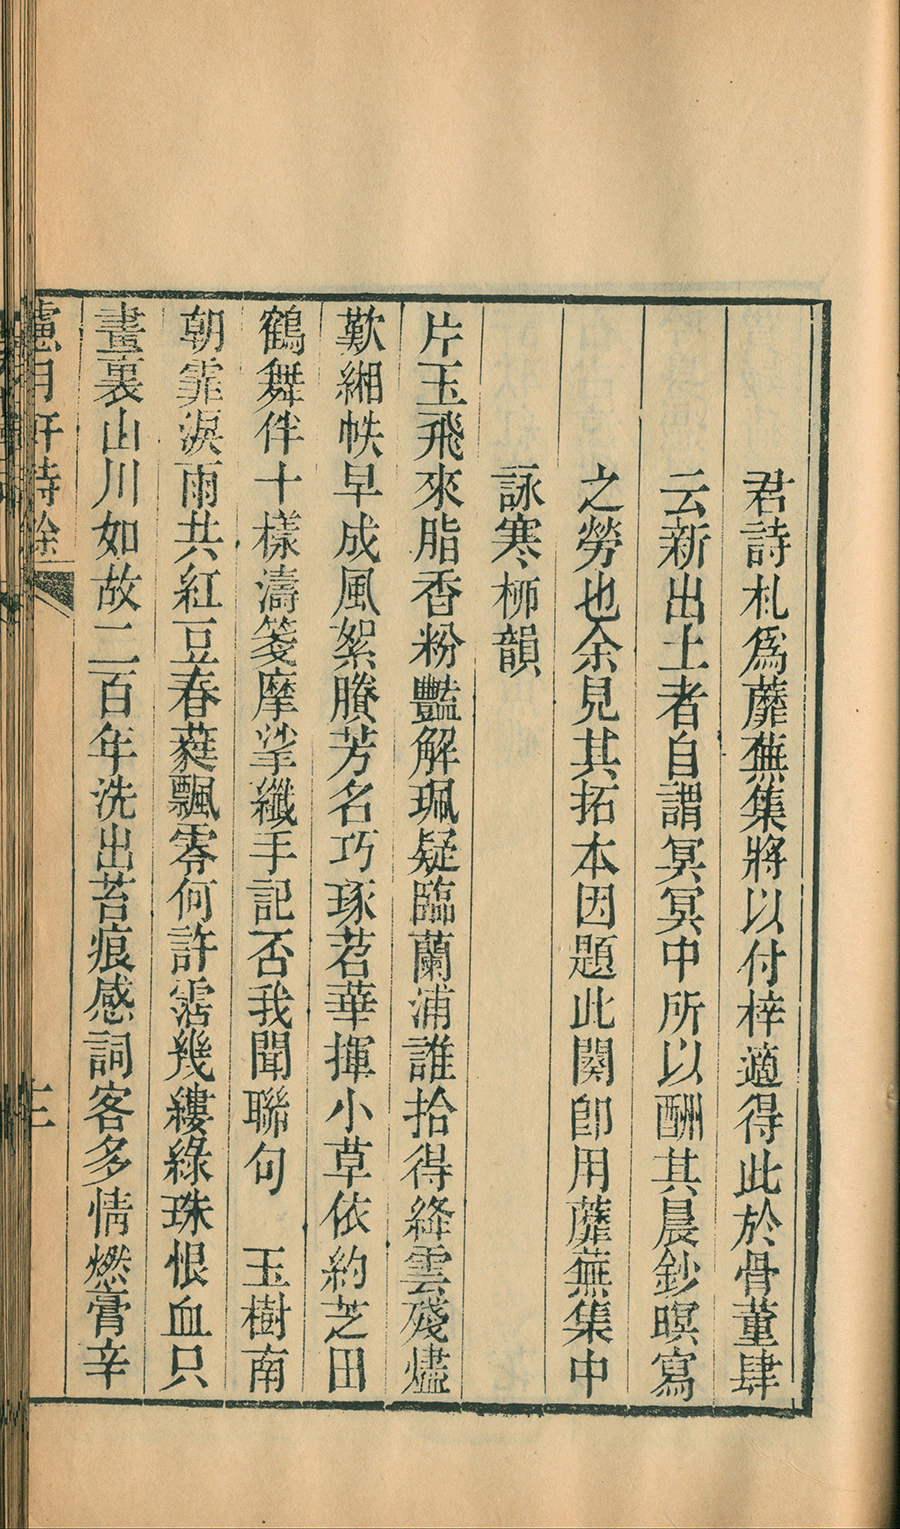 君詩札爲蘼蕪集將以付梓適得此於骨董肆
云新出土者自謂冥冥中所以酬其晨鈔暝寫
之勞也余見其拓本因題此闋卽用蘼蕪集中
詠寒柳韻
片玉飛來脂香粉豔解珮疑臨蘭浦誰拾得絳雲殘燼
歎緗帙早成風絮賸芳名巧琢苕華揮小草依約芝田
鶴舞伴十樣濤箋摩挲纖手記否我聞聯句　玉樹南
朝霏淚雨共紅豆春蕤飄零何許霑幾縷綠珠恨血只
畫裏山川如故二百年洗出苔痕感詞客多情燃膏辛
月軒詩餘
三